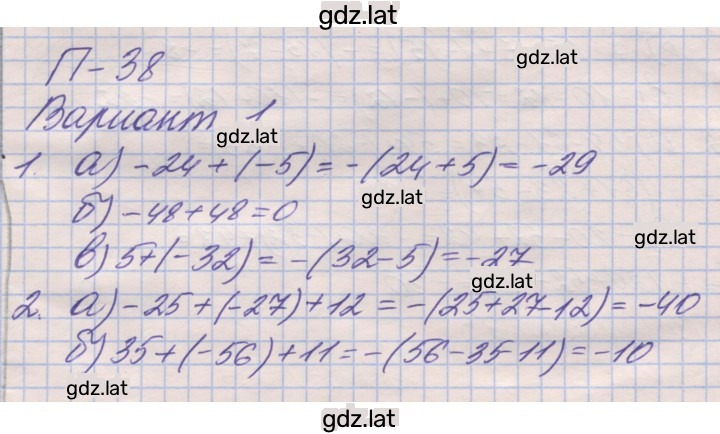 gdz.lat
П-38
gdz.lat
Вариант 1
gdz.lat
1. а) -24 + (-5) = -(24+5) = -29
gdz.lat
б) -48+48=0
gdz.lat
в) 5+(-32) = -(32-5) = -27
gdz.lat
2. а) -25 + (-27) + 12 = -(25+27-12) = -40
б) 35 + (-56) + 11 = -(56-35-11) = -10
gdz.lat
gdz.lat